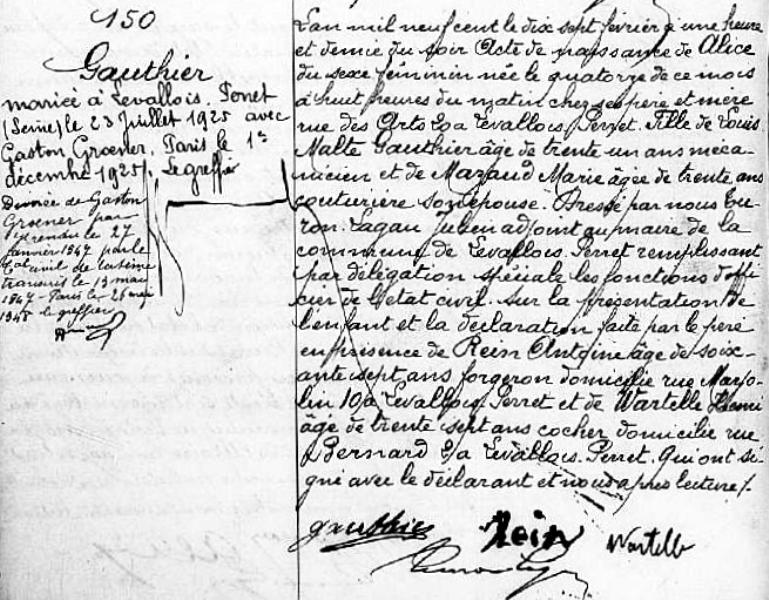 150
Gauthier
mariée à Levallois-Perret
(Seine) le 23 Juillet 1925 avec
Gaston Groener. Paris le 1er
décembre 1925/. Le greffier
Divorcée de Gaston
Groener par
rendu le 27
Janvier 1947 par le
T. civil de la Seine
transcrit le 13 mai
1947 - Paris le
1948 le greffier
L'an mil neuf cent le dix sept février à une heure
et demie du soir Acte de naissance de Alice
du sexe féminin née le quatorze de ce mois
à huit heures du matin chez ses père et mère
rue des Arts à Levallois-Perret. Fille de Louis
Malte Gauthier âgé de trente un ans méca-
nicien et de Mazaud Marie âgée de trente ans
couturière son épouse. Dressé par nous
Lagau Julien adjoint au maire de la
commune de Levallois-Perret remplissant
par délégation spéciale les fonctions d'offi-
cier de l'état civil. sur la présentation de
l'enfant et la déclaration faite par le père
en présence de Rein Antoine âgé de soix-
ante sept ans forgeron domicilié rue Marjo-
lin 19 à Levallois-Perret et de Wartelle
âgé de trente sept ans cocher domicilié rue
Bernard à Levallois-Perret. Qui ont si-
gné avec le déclarant et nous après lecture/.
gauthier Rein Wartelle